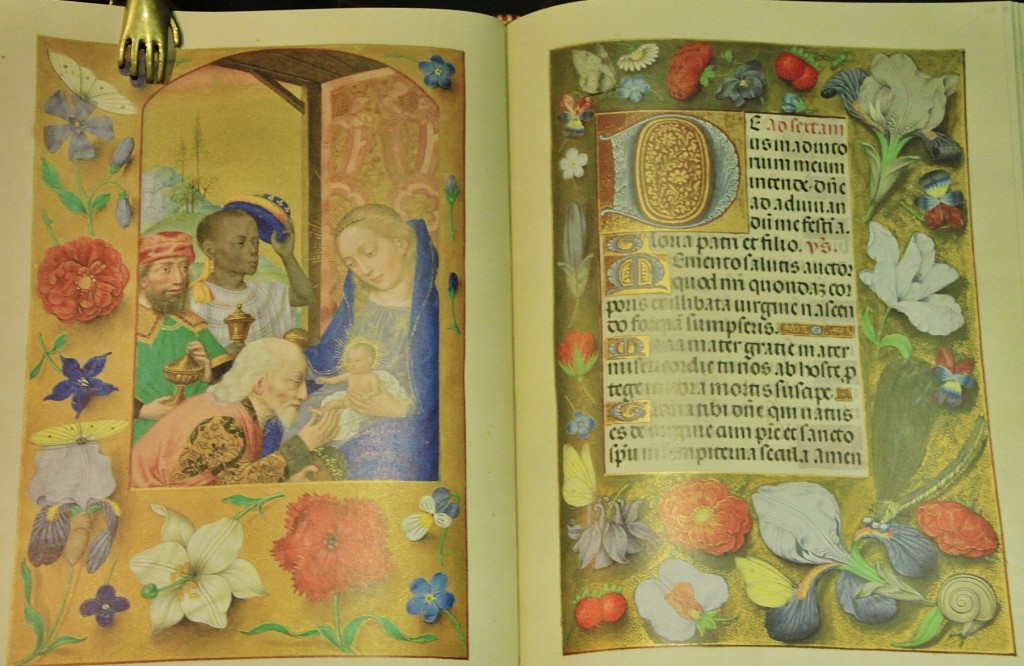 E ad sertam
us in adiuto
rum meum
intende. dñe
ad adiuuan
dũ me festi a.
Gloria patri et filio. vs.
Memento salutis auctor
quod nr̃i quondaz cor
poris ex illibata virgine nascen
do formã sumpseris.
Maria mater gratie mater
misericordie tu nos ab hoste p
tege in hora mortis suscipe.
Gloria tibi dñe qui natus
es de virgine cum pr̃e et sancto
sp̃u in sempiterna secula amen